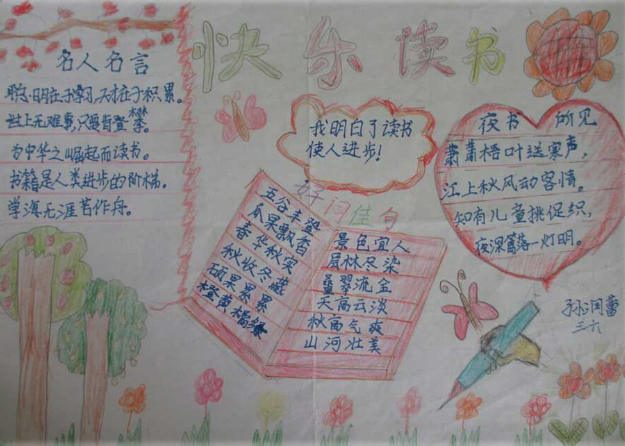 快乐读书
名人名言
聪明在于学习,天才在于积累。
世上无难事,只要肯登攀。
为中华之崛起而读书。
书籍是人类进步的阶梯。
学海无涯苦作舟。
我明白了读书
使人进步!
好词佳句
五谷丰登
瓜果飘香
春华秋实
秋收冬藏
硕果累累
橙黄橘绿
景色宜人
层林尽染
叠翠流金
天高云淡
秋高气爽
山河壮美
夜书所见
萧萧梧叶送寒声,
江上秋风动客情。
知有儿童挑促织,
夜深篱落一灯明。
孙润蕾
三六